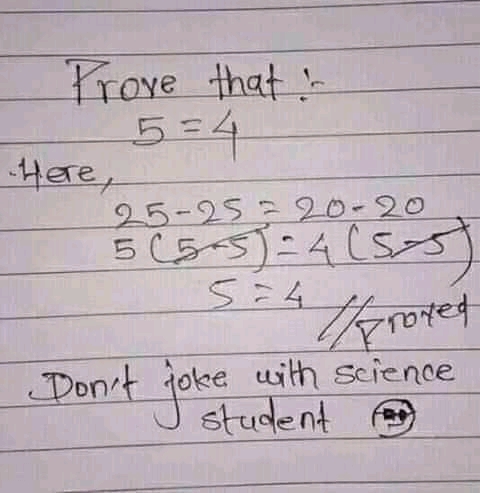 Prove that :-
5 = 4
Here,
25 - 25 = 20 - 20
5 (5-5) = 4 (5-5)
5 = 4
// Proved
Don't joke with science
student